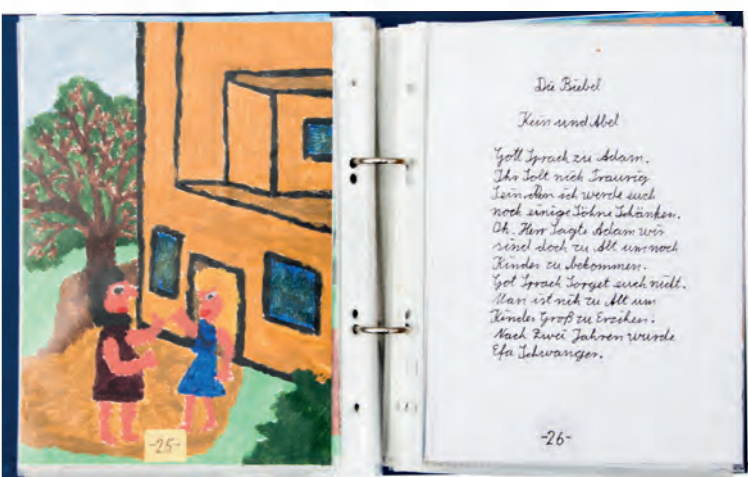 -25-
Die Biebel
Kein und Abel
Gott Sprach zu Adam.
Ihr Solt nich Traurig
Sein. Den ich werde euch
noch einige Söhne Schänken.
Oh. Herr Sagte Adam wir
sind doch zu Alt um noch
Kinder zu bekommen.
Got Sprach Sorget euch nicht.
Man ist nih zu Alt um
Kinder Groß zu Erzihen.
Nach Zwei Jahren wurde
Efa Schwanger.
-26-